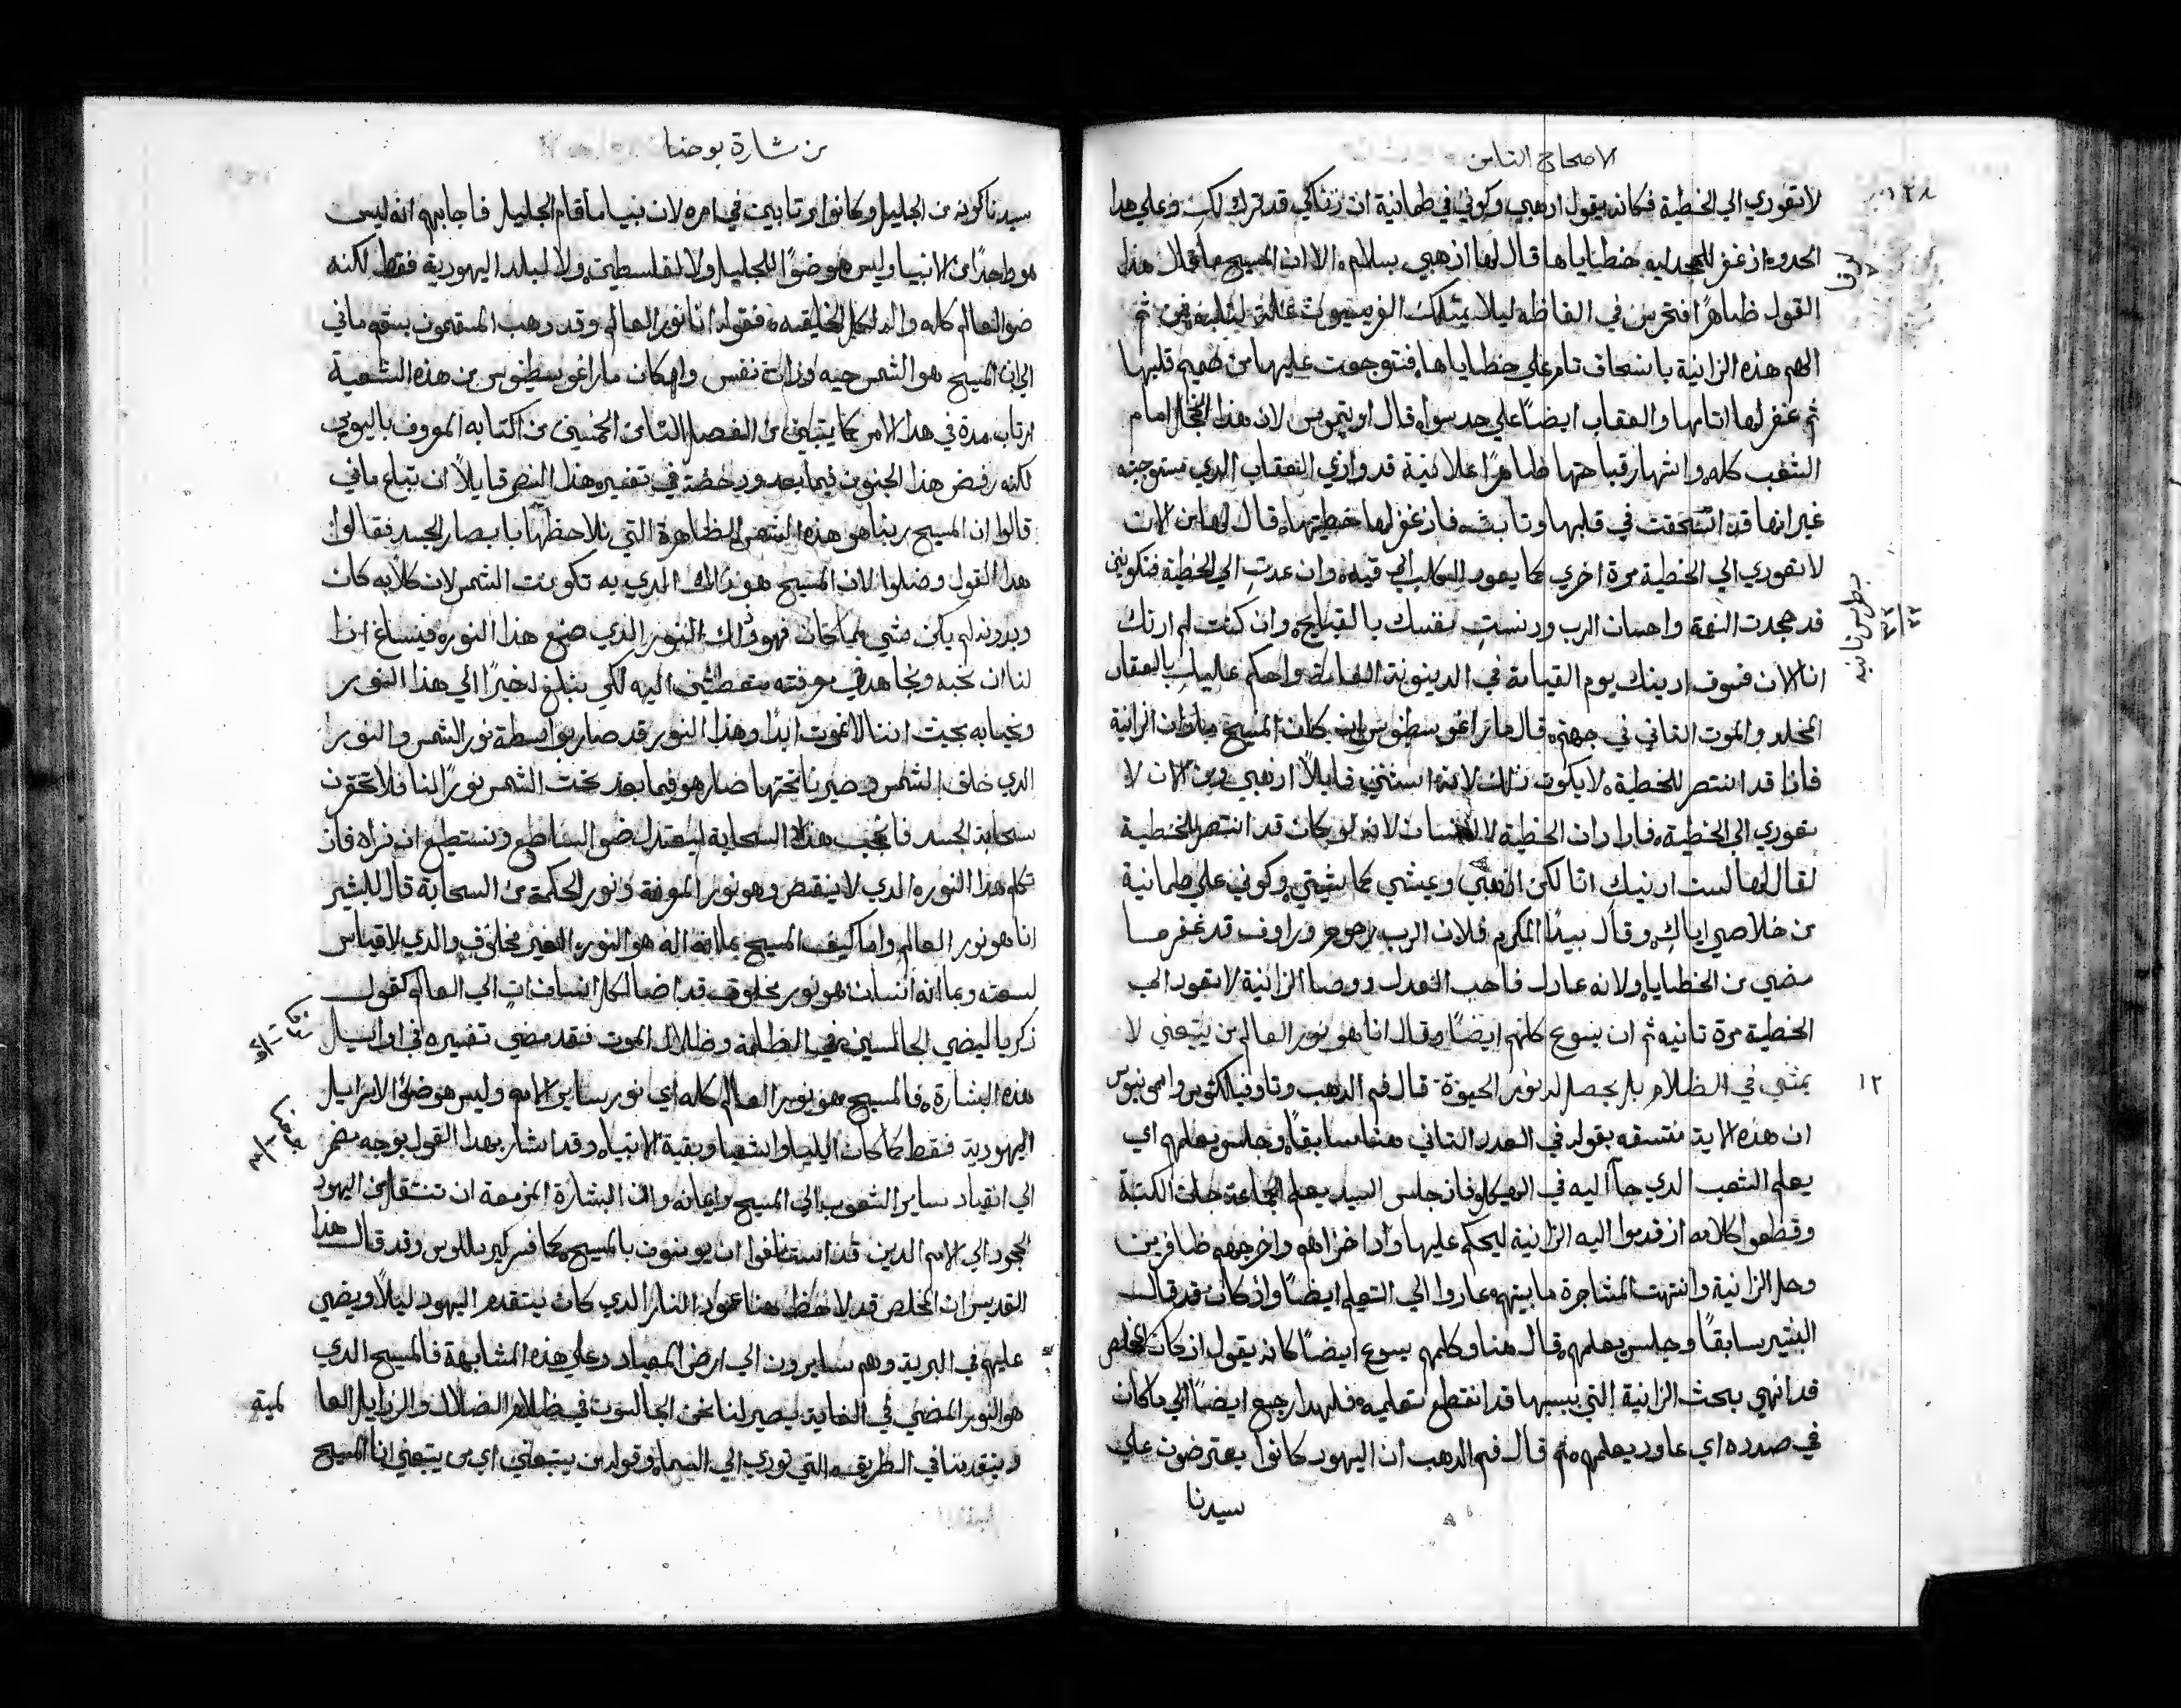 الاصحاح التامن
لاتعودي الي الخطية فكانه يقول ادهبي وكوني في طمانية ان زناكي قد ترك لكي وعلي هدا
الحدوه اذ غفر للمجدلية خطاياها قال لها اذهبي بسلام الا ان المسيح ما قال هدا
لوقا
القول ظاهرًا افتحرس في الفاظه ليلا يمتلك الفريسيون علة لثلبه فمن ثم
الهم هذه الزانية بانسحاق تام علي خطاياها فتوجعت عليها من صميم قلبها
ثم غفر لها اتامها والعقاب ايضًا علي حد سوا قال اوتيموس لان هدا الخجل امام
الشعب كله واشهار قباحتها ظاهرًا علانية قد وازي العقاب الدي تستوجبه
غير انها قد انسحقت في قلبها وتابت فاذ غفر لها خطيتها قال لها من الان
لاتعودي الي الخطية مرة اخري كما يعود الكلب الي قيه وان عدتِ الي الخطية فتكونين
بطرس تانيه
قد جحدت النعمة واحسان الرب ودنستِ نفسك بالقبايح وان كنت لم ادنك
انا الان فسوف ادينك يوم القيامة في الدينونة العامة واحكم عليك بالعقاب
المخلد والموت التاني في جهنم قال مار اغوسطينوس ان كان المسيح ما دان الزانية
فاذا قد انتصر للخطية لا يكون ذلك لانه استثني قايلاً اذهبي ومن الان لا
تعودي الي الخطية فاذا دان الخطية لا الانسان لانه لو كان قد انتصر للخطية
لقال لها لست ادينك انا لكن اذهبي وعيشي كما شيتي وكوني علي طمانية
من خلاصي اياك وقال بيدا المكرم فلان الرب رحوم وراوف قد غفر ما
مضي من الخطايا ولانه عادل فاحب العدل ووصا الزانية لا تعود الي
الخطية مرة تانية ثم ان يسوع كلمهم ايضًا وقال انا هو نور العالم من يتبعني لا
١٢
يمشي في الظلام بل يحصل له نور الحيوة قال فم الدهب وتاوفيلكتوس وامونيوس
ان هذه الاية متسقه بقوله في العدد التاني هنا سابقًا وجلس يعلمهم اي
يعلم الشعب الدي جا اليه في الهيكل فاذ جلس السيد يعلم الجماعة جات الكتبة
وقطعوا كلامه اذ قدموا اليه الزانية ليحكم عليها واذ اخزاهم واخرجهم ظافرين
وحل الزانية وانتهت المشاجرة ما بينهم عادوا الي التعلم ايضًا واذ كان قد قال
البشير سابقًا وجلس يعلمهم قال هنا وكلمهم يسوع ايضًا كانه يقول اذ كان المخلص
قد انهي بحث الزانية التي بسببها قد انقطع تعليمه فلهدا رجع ايضًا الي ما كان
في صدده اي عاود يعلمهم ثم قال فم الدهب ان اليهود كانوا يعترضون علي
سيدنا
من بشارة يوحنا
سيدنا كونه من الجليل وكانوا مرتابين في امره لان نبيا ما قام الجليل فاجابهم انه ليس
هو واحدًا من الانبيا وليس هو ضوًا للجليل ولا لفلسطين ولا لبلد اليهودية فقط لكنه
ضو العالم كله واله لكل الخليقه فقوله انا نور العالم وقد دهب المسقمون بسقم ماني
الي ان المسيح هو الشمس حيه وذات نفس وامكان مار اغوسطينوس من هذه الشعبة
ارتاب مدة في هدا الامر كما يتبين من الفصل التامن الخمسين من كتابه المعروف باليوبي
لكنه رفض هذا الجنون فيما بعد ودحضه في تفسيره هذا النص قايلاً ان تباع ماني
قالوا ان المسيح ربنا هو هذه الشمس الظاهرة التي نلاحظها بابصار الجسد فقالوا
هدا القول وضلوا لان المسيح هو ذاك الدي به تكونت الشمس لان كلاً به كان
وبدونه لم يكن شي مما كان فهو ذلك النور الذي صنع هذا النور فينساغ اذا
لنا ان نحبه ونجاهد في معرفته متعطشين اليه لكي نبلغ اخيرًا الي هذا النور
ونحيا به بحيث اننا لا نموت ابدًا وهذا النور قد صار بواسطة نور الشمس والنور
الدي خلف الشمس وصيرنا تحتها صار هو فيما بعد تحت الشمس نورًا لنا فلا تحتقرن
سحابة الجسد فانحجب بهذه السحابة ليعتدل ضو الساطع ونستطيع ان نراه فاذ
تكلم هذا النور الدي لا ينقص وهو نور المعرفة ونور الحكمة من السحابة قال للبشر
انا هو نور العالم واما كيف المسيح بما انه اله هو النور الغير مخلوق والدي لا قياس
لسعته وبما انه انسان هو نور مخلوق قد اضا لكل انسان ات الي العالم كقول
زكريا ليضي الجالسين في الظلمة وظلال الموت فقد مضي تفسيره في اوايل
هذه البشارة فالمسيح هو نور العالم كله اي نور ساير الامم وليس هو ضوًا لاسرايل
اليهودية فقط كما كان ايليا واشعيا وبقية الانبيا وقد اشار بهدا القول بوجه مضمر
الي انقياد ساير الشعوب الي المسيح وايمانه وان البشارة المزمعة ان تنتقل من اليهود
الجحود الي الامم الدين قد استانفوا ان يومنون بالمسيح كما فسر كيرللوس وقد قال هذا
القديس ان المخلص قد لاحظ هنا عمود النار الدي كان يتقدم اليهود ليلاً ويضي
عليهم في البرية وهم سايرون الي ارض الميعاد وعلي هذه المشابهة فالمسيح الدي
هو النور المضي في الغاية يصير لنا نحن الجالسون في ظلام الضلال والرذايل العالمية
ويتقدمنا في الطريق التي تودي الي السما وقوله من يتبعني اي من يتبعني انا المسيح